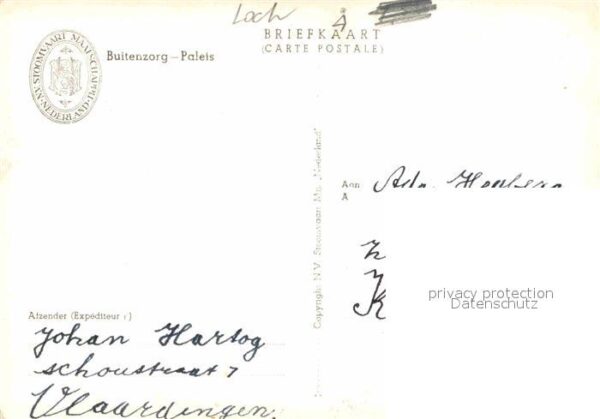 Loch
BRIEFKAART
(CARTE POSTALE)
N.V. STOOMVAART MAATSCHAPPIJ
"NEDERLAND"
Buitenzorg – Paleis
Copyright N.V. Stoomvaart Mij. „Nederland"
Aan
A
Ada
privacy protection
Datenschutz
Afzender (Expéditeur)
Johan Hartog
schoustraat 7
Vlaardingen.